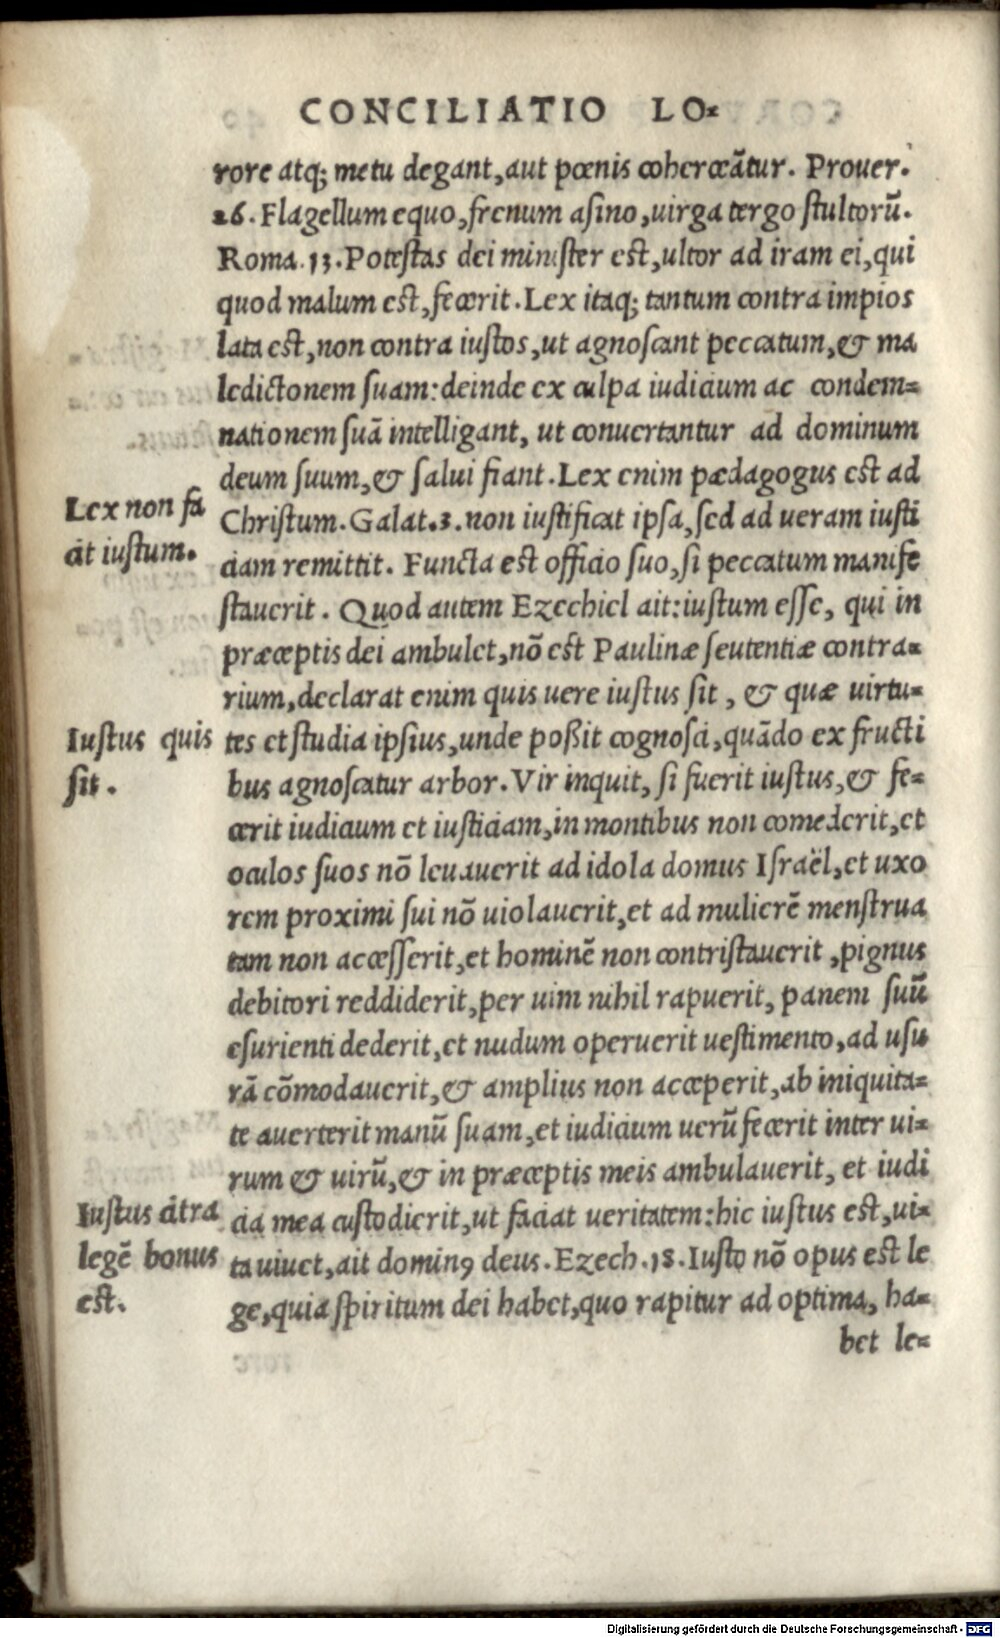 CONCILIATIO LO-
rore atq; metu degant, aut pœnis cohercēātur. Prouer.
26. Flagellum equo, frenum asino, uirga tergo stultorū.
Roma. 13. Potestas dei minister est, ultor ad iram ei, qui
quod malum est, fecerit. Lex itaq; tantum contra impios
lata est, non contra iustos, ut agnoscant peccatum, & ma
ledictonem suam: deinde ex culpa iudicium ac condem-
nationem suā intelligant, ut conuertantur ad dominum
deum suum, & salui fiant. Lex enim pædagogus est ad
Lex non fa
Christum. Galat. 3. non iustificat ipsa, sed ad ueram iusti
cit iustum.
ciam remittit. Functa est officio suo, si peccatum manife
stauerit. Quod autem Ezechiel ait: iustum esse, qui in
præceptis dei ambulet, nō est Paulinæ seutentiæ contra-
rium, declarat enim quis uere iustus sit, & quæ uirtu-
Iustus quis
tes et studia ipsius, unde poßit cognosci, quādo ex fructi
sit.
bus agnoscatur arbor. Vir inquit, si fuerit iustus, & fe-
cerit iudicium et iusticiam, in montibus non comederit, et
oculos suos nō leuauerit ad idola domus Israël, et uxo
rem proximi sui nō uiolauerit, et ad mulierē menstrua
tam non accesserit, et hominē non contristauerit, pignus
debitori reddiderit, per uim nihil rapuerit, panem suū
esurienti dederit, et nudum operuerit uestimento, ad usu
rā cōmodauerit, & amplius non acceperit, ab iniquita-
te auerterit manū suam, et iudicium uerū fecerit inter ui-
rum & uirū, & in præceptis meis ambulauerit, et iudi
Iustus citra
cia mea custodierit, ut faciat ueritatem: hic iustus est, ui-
legē bonus
ta uiuet, ait dominꝰ deus. Ezech. 18. Iusto nō opus est le
est.
ge, quia spiritum dei habet, quo rapitur ad optima, ha-
bet le-
Digitalisierung gefördert durch die Deutsche Forschungsgemeinschaft - DFG